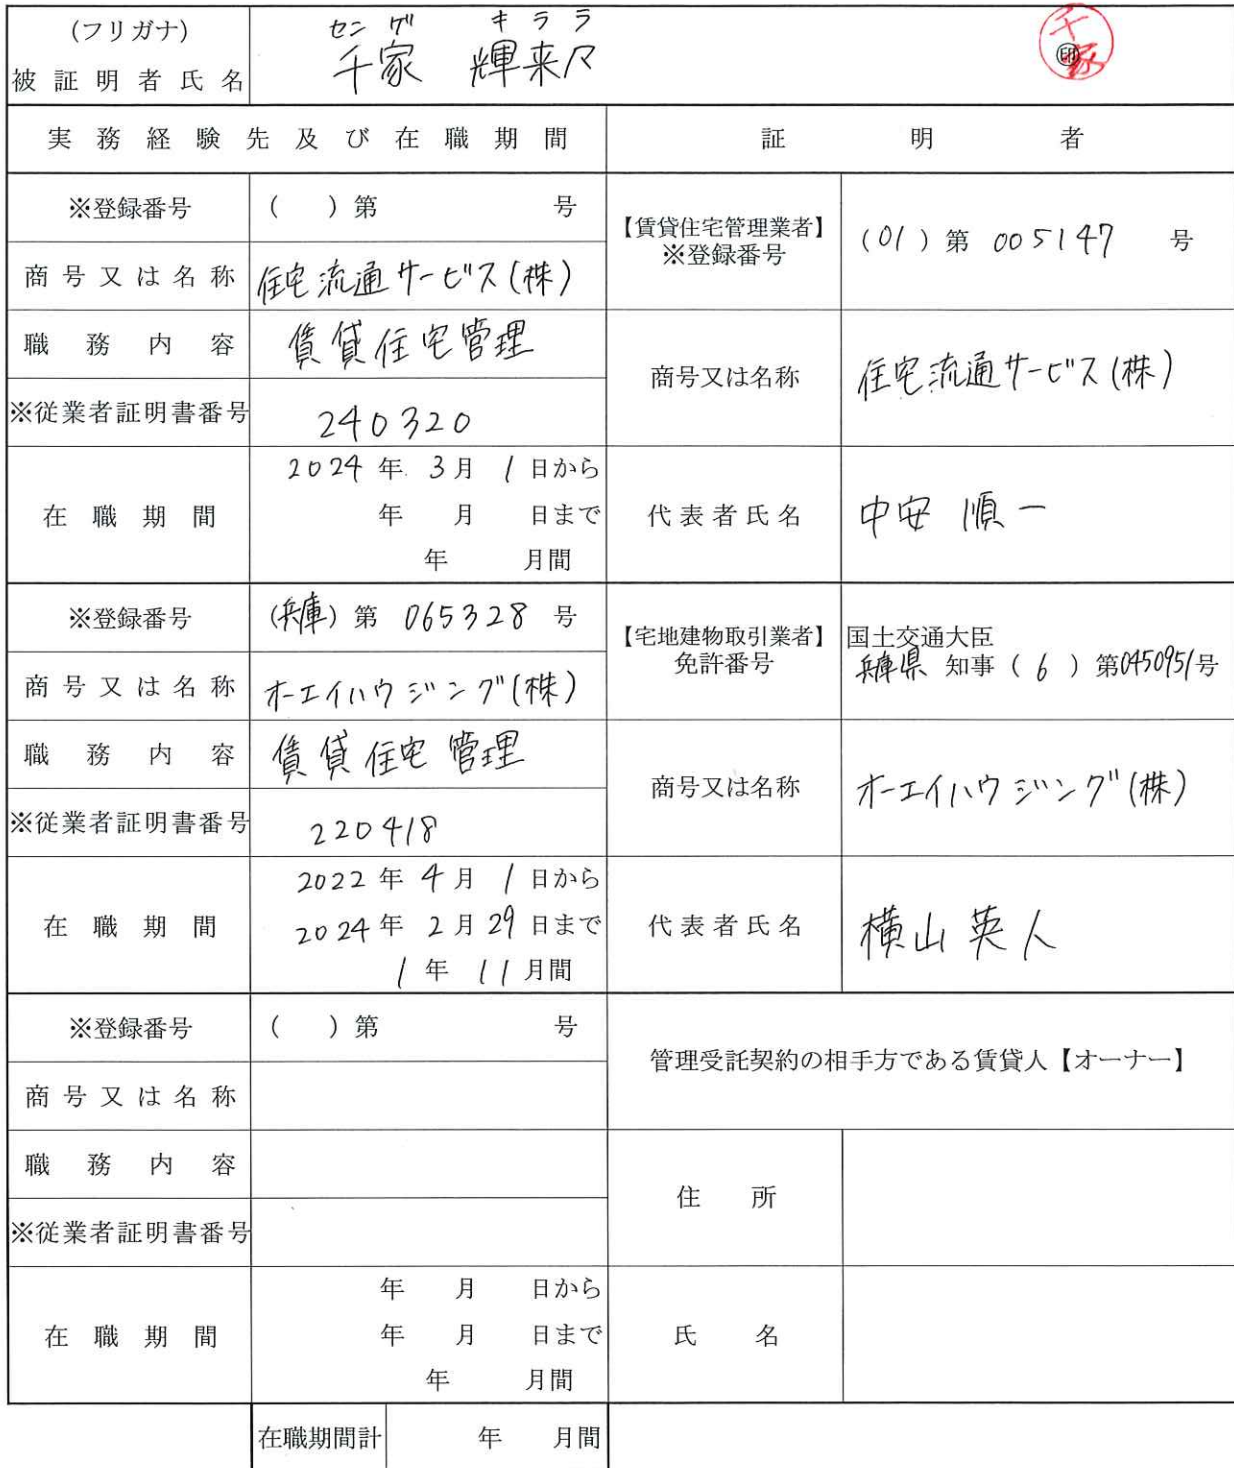 (フリガナ)
センゲ キララ
被証明者氏名
千家 輝来々
千家
㊞
実務経験先及び在職期間
証明者
※登録番号
( )第 号
【賃貸住宅管理業者】
※登録番号
(01)第 005147 号
商号又は名称
住宅流通サービス(株)
職務内容
賃貸住宅管理
商号又は名称
住宅流通サービス(株)
※従業者証明書番号
240320
在職期間
2024年 3月 1日から
年 月 日まで
年 月間
代表者氏名
中安 順一
※登録番号
(兵庫)第 065328 号
【宅地建物取引業者】
免許番号
国土交通大臣
兵庫県 知事(6)第0450951号
商号又は名称
オーエイハウジング(株)
職務内容
賃貸住宅管理
商号又は名称
オーエイハウジング(株)
※従業者証明書番号
220418
在職期間
2022年 4月 1日から
2024年 2月 29日まで
1年 11月間
代表者氏名
横山英人
※登録番号
( )第 号
管理受託契約の相手方である賃貸人【オーナー】
商号又は名称
職務内容
住所
※従業者証明書番号
在職期間
年 月 日から
年 月 日まで
年 月間
氏名
在職期間計
年 月間